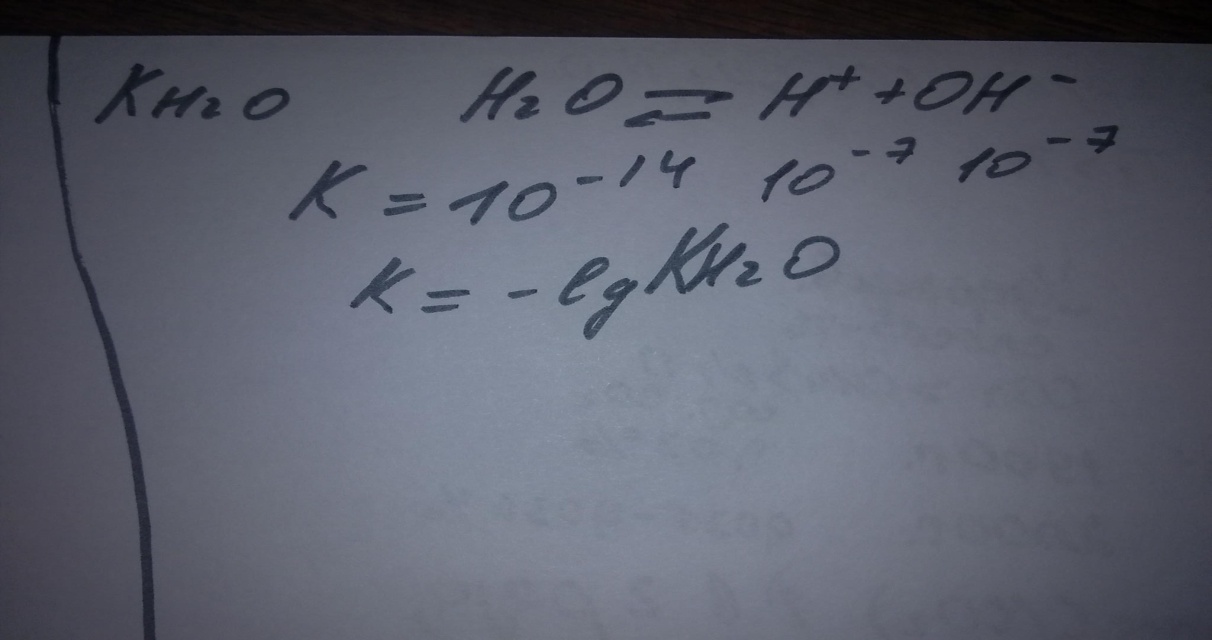 KH2O H2O ⇌ H+ + OH-
K = 10-14 10-7 10-7
K = - lg KH2O